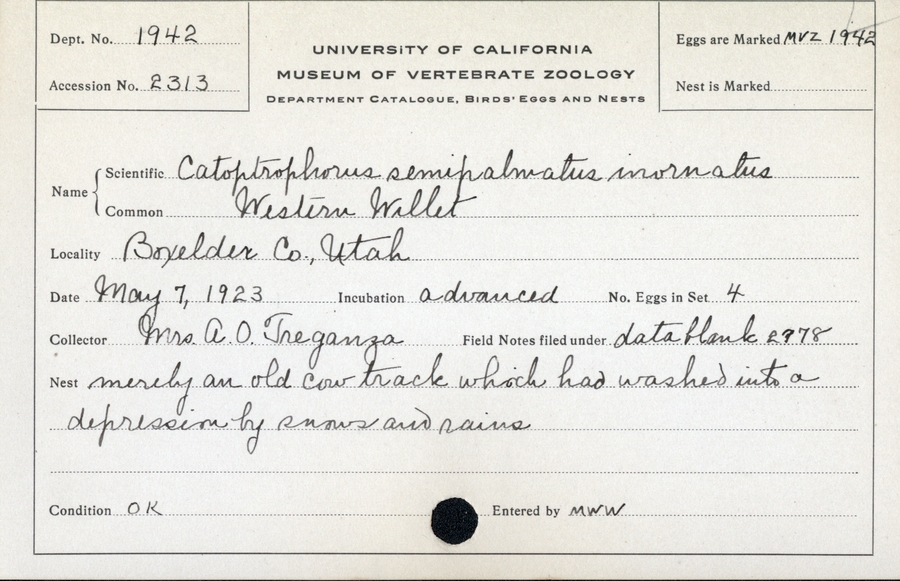 Dept. No. 1942
Accession No. 2313
UNIVERSITY OF CALIFORNIA
MUSEUM OF VERTEBRATE ZOOLOGY
DEPARTMENT CATALOGUE, BIRDS' EGGS AND NESTS
Eggs are Marked MVZ 1942
Nest is Marked
Name { Scientific Catoptrophorus semipalmatus inornatus
Common Western Willet
Locality Boxelder Co., Utah
Date May 7, 1923 Incubation advanced No. Eggs in Set 4
Collector Mrs. A. O. Treganza Field Notes filed under data blank 2978
Nest merely an old cow track which had washed into a
depression by snows and rains
Condition OK Entered by MWW